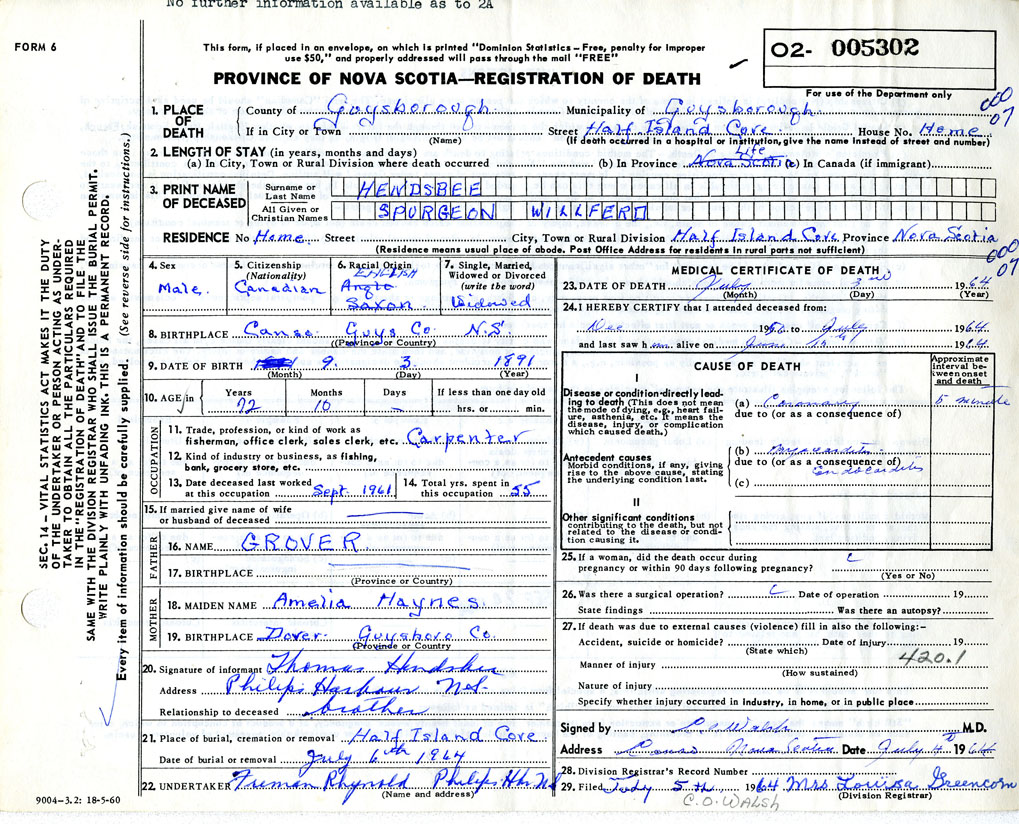 No further information available as to 2A
FORM 6
This form, if placed in an envelope, on which is printed "Dominion Statistics – Free, penalty for improper
use $50," and properly addressed will pass through the mail "FREE"
O2- 005302
PROVINCE OF NOVA SCOTIA—REGISTRATION OF DEATH
For use of the Department only
000
07
1. PLACE OF DEATH
County of Guysborough Municipality of Guysborough
If in City or Town (Name) Street Half Island Cove House No. Home
(If death occurred in a hospital or institution, give the name instead of street and number)
2. LENGTH OF STAY (in years, months and days)
Life
(a) In City, Town or Rural Division where death occurred (b) In Province Nova Scotia (c) In Canada (if immigrant)
3. PRINT NAME OF DECEASED
Surname or Last Name HENDSBEE
All Given or Christian Names SPURGEON WILLFERD
RESIDENCE No Home Street City, Town or Rural Division Half Island Cove Province Nova Scotia
(Residence means usual place of abode. Post Office Address for residents in rural parts not sufficient)
000
07
4. Sex
Male
5. Citizenship
(Nationality)
Canadian
6. Racial Origin
ENGLISH
Anglo
Saxon
7. Single, Married,
Widowed or Divorced
(write the word)
Widowed
8. BIRTHPLACE Canso Guys Co. N.S.
(Province or Country)
9. DATE OF BIRTH 9 3 1891
(Month) (Day) (Year)
10. AGE in
Years 72
Months 10
Days –
If less than one day old
hrs. or min.
OCCUPATION
11. Trade, profession, or kind of work as
fisherman, office clerk, sales clerk, etc. Carpenter
12. Kind of industry or business, as fishing,
bank, grocery store, etc.
13. Date deceased last worked
at this occupation Sept. 1961
14. Total yrs. spent in
this occupation 55
15. If married give name of wife
or husband of deceased
FATHER
16. NAME GROVER
17. BIRTHPLACE
(Province or Country)
MOTHER
18. MAIDEN NAME Amelia Haynes
19. BIRTHPLACE Dover Guysboro Co.
(Province or Country
20. Signature of informant Thomas Hendsbee
Address Philips Harbour N.S.
Relationship to deceased brother
21. Place of burial, cremation or removal Half Island Cove
Date of burial or removal July 6th 1964
22. UNDERTAKER Freman Rhynold Philips Hbr NS
(Name and address)
9004–3.2: 18-5-60
MEDICAL CERTIFICATE OF DEATH
23. DATE OF DEATH July 3rd 1964
(Month) (Day) (Year)
24. I HEREBY CERTIFY that I attended deceased from:
Dec 1956 to July 1964
and last saw h im alive on June 1964
CAUSE OF DEATH
Approximate
interval be-
tween onset
and death
I
Disease or condition directly lead-
ing to death (This does not mean
the mode of dying, e.g., heart fail-
ure, asthenia, etc. It means the
disease, injury, or complication
which caused death.)
(a) Coronary 5 minute
due to (or as a consequence of)
Antecedent causes
Morbid conditions, if any, giving
rise to the above cause, stating
the underlying condition last.
(b) Myocarditis
due to (or as a consequence of)
Endocarditis
(c)
II
Other significant conditions
contributing to the death, but not
related to the disease or condi-
tion causing it.
25. If a woman, did the death occur during
pregnancy or within 90 days following pregnancy?
(Yes or No)
26. Was there a surgical operation? Date of operation 19
State findings Was there an autopsy?
27. If death was due to external causes (violence) fill in also the following:–
Accident, suicide or homicide? Date of injury 19
(State which)
420.1
Manner of injury
(How sustained)
Nature of injury
Specify whether injury occurred in industry, in home, or in public place
Signed by C O Walsh M.D.
Address Canso Nova Scotia Date July 4th 1964
28. Division Registrar's Record Number
29. Filed July 5th, 1964 Mrs Louisa Greencorn
(Division Registrar)
C.O. WALSH
SEC. 14 – VITAL STATISTICS ACT MAKES IT THE DUTY
OF THE UNDERTAKER OR PERSON ACTING AS UNDER-
TAKER TO OBTAIN ALL THE PARTICULARS REQUIRED
IN THE "REGISTRATION OF DEATH" AND TO FILE THE
SAME WITH THE DIVISION REGISTRAR WHO SHALL ISSUE THE BURIAL PERMIT.
WRITE PLAINLY WITH UNFADING INK. THIS IS A PERMANENT RECORD.
Every item of information should be carefully supplied. (See reverse side for instructions.)